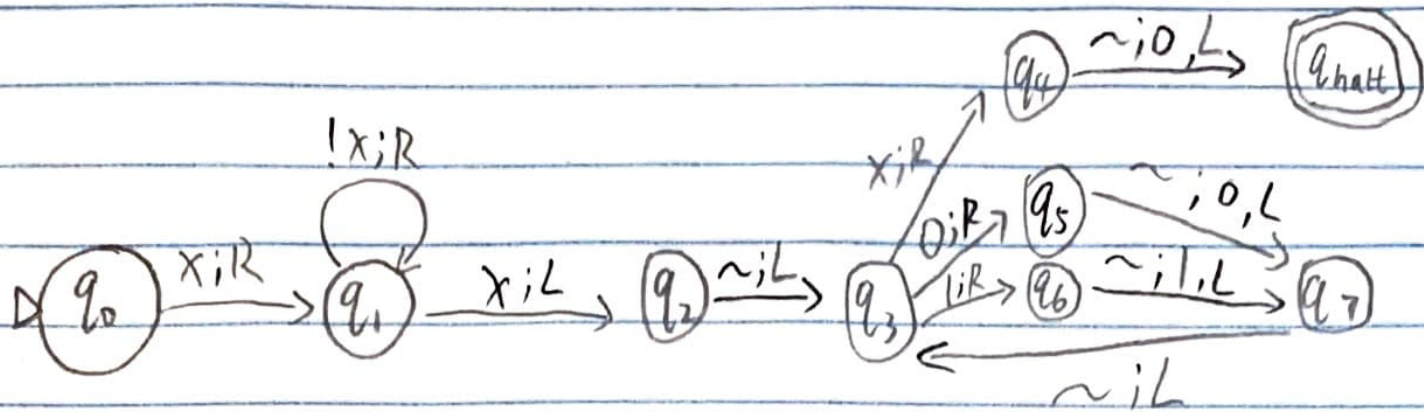 q4 ~;0,L qhalt
!x;R
x;R 0;R q5 ~;0,L
q0 x;R q1 x;L q2 ~;L q3 1;R q6 ~;1,L q7
~;L